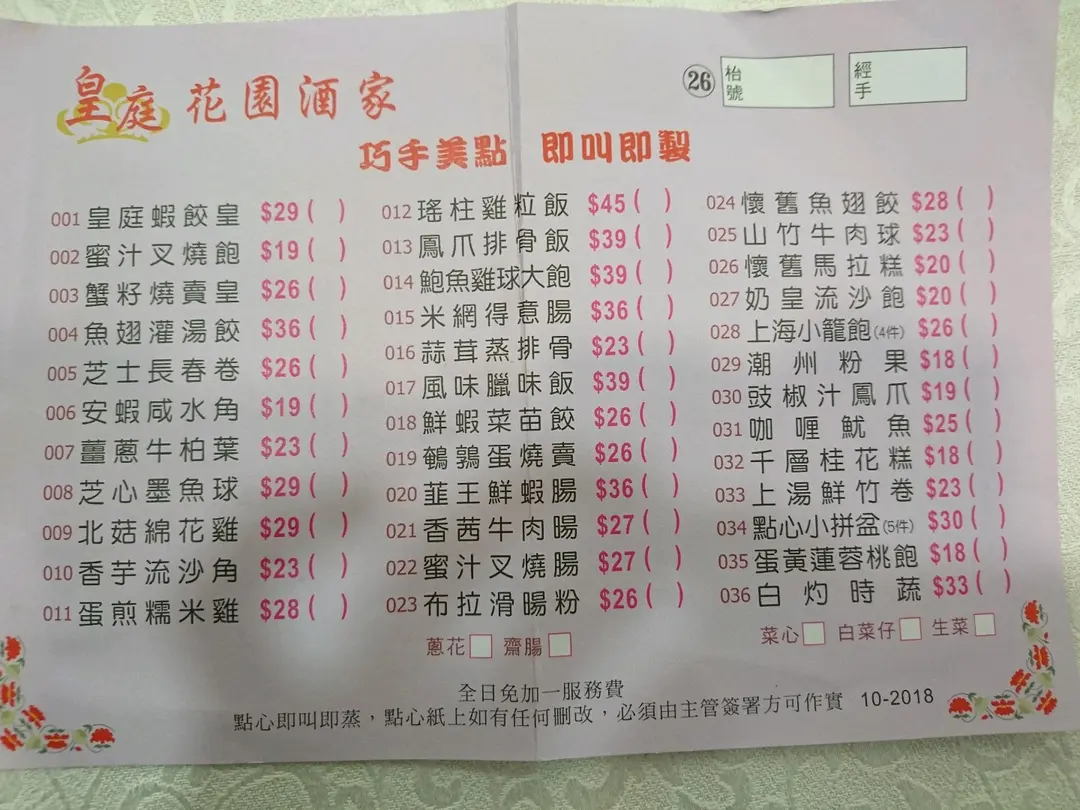 皇庭花園酒家
26 枱號 經手
巧手美點 即叫即製
001 皇庭蝦餃皇 $29 ( )
002 蜜汁叉燒飽 $19 ( )
003 蟹籽燒賣皇 $26 ( )
004 魚翅灌湯餃 $36 ( )
005 芝士長春卷 $26 ( )
006 安蝦咸水角 $19 ( )
007 薑蔥牛柏葉 $23 ( )
008 芝心墨魚球 $29 ( )
009 北菇綿花雞 $29 ( )
010 香芋流沙角 $23 ( )
011 蛋煎糯米雞 $28 ( )
012 瑤柱雞粒飯 $45 ( )
013 鳳爪排骨飯 $39 ( )
014 鮑魚雞球大飽 $39 ( )
015 米網得意腸 $36 ( )
016 蒜茸蒸排骨 $23 ( )
017 風味臘味飯 $39 ( )
018 鮮蝦菜苗餃 $26 ( )
019 鵪鶉蛋燒賣 $26 ( )
020 韮王鮮蝦腸 $36 ( )
021 香茜牛肉腸 $27 ( )
022 蜜汁叉燒腸 $27 ( )
023 布拉滑腸粉 $26 ( )
蔥花 齋腸
024 懷舊魚翅餃 $28 ( )
025 山竹牛肉球 $23 ( )
026 懷舊馬拉糕 $20 ( )
027 奶皇流沙飽 $20 ( )
028 上海小籠飽(4件) $26 ( )
029 潮州粉果 $18 ( )
030 豉椒汁鳳爪 $19 ( )
031 咖喱魷魚 $25 ( )
032 千層桂花糕 $18 ( )
033 上湯鮮竹卷 $23 ( )
034 點心小拼盆(5件) $30 ( )
035 蛋黃蓮蓉桃飽 $18 ( )
036 白灼時蔬 $33 ( )
菜心 白菜仔 生菜
全日免加一服務費
點心即叫即蒸，點心紙上如有任何刪改，必須由主管簽署方可作實 10-2018